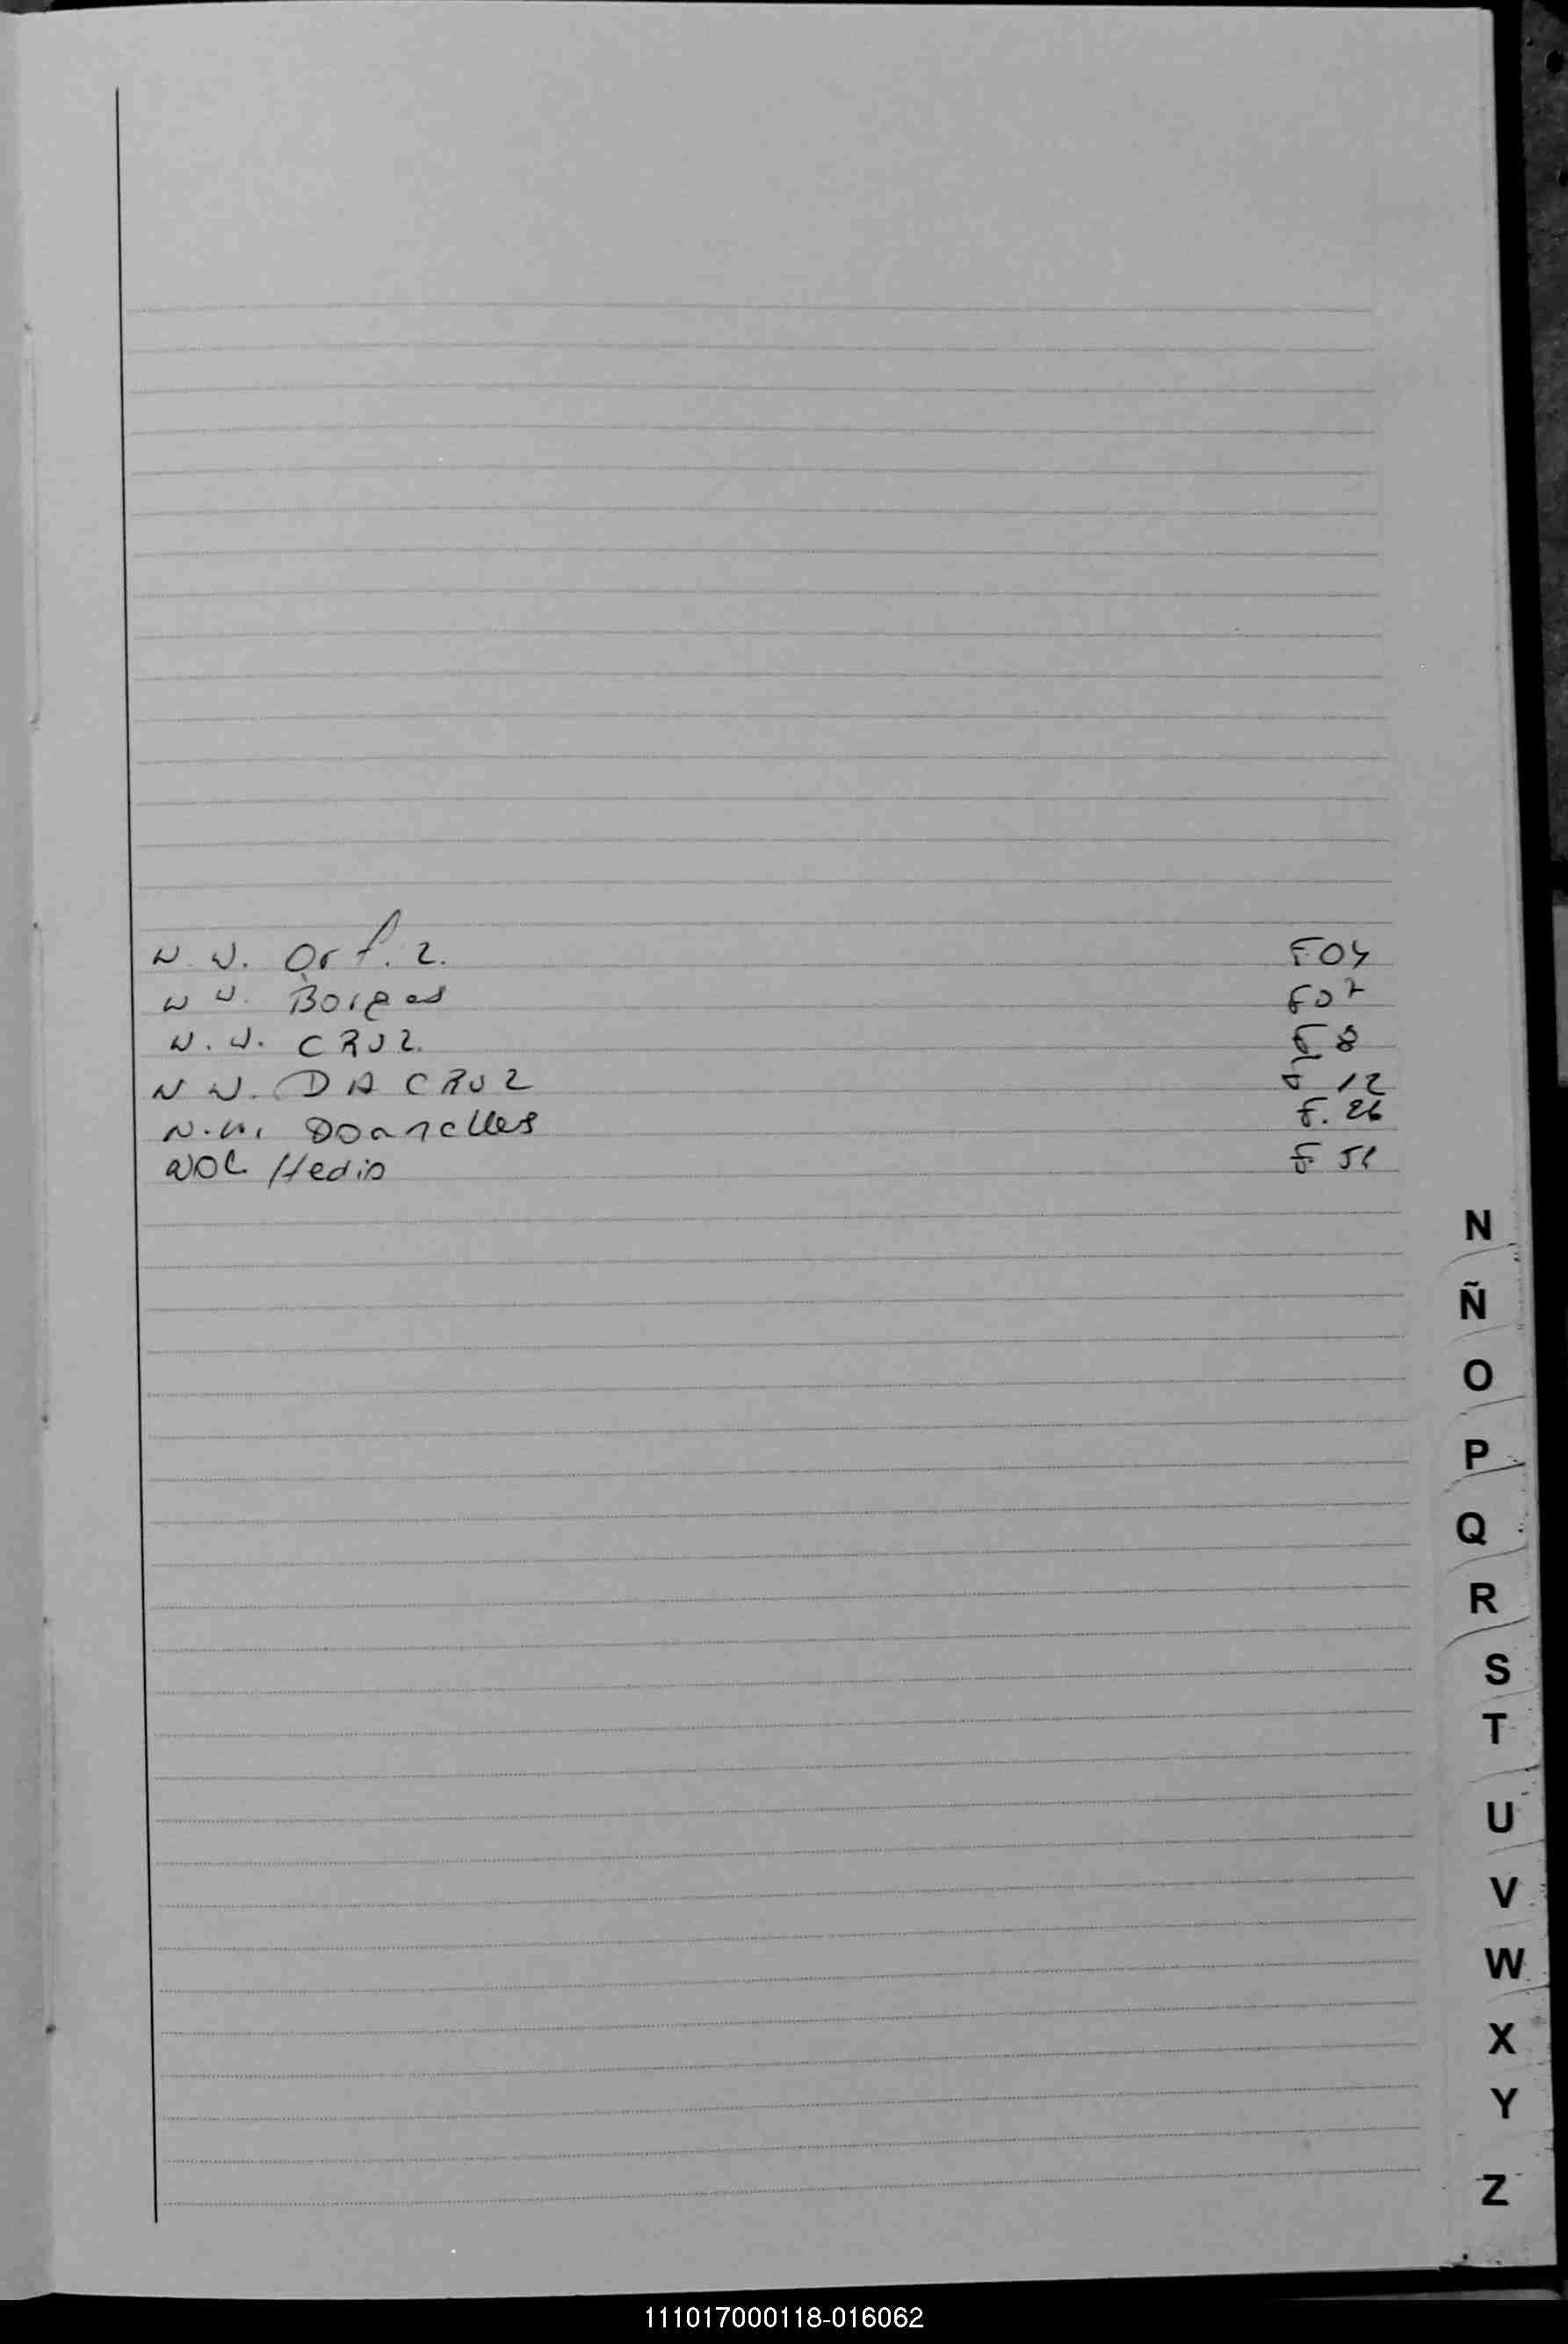 N. N. Ort. z. F04
N N. Borges F07
N. N. CRUZ. F 8
N N. DA CRUZ F 12
N. N. Doanelles F. 26
F 51
N
Ñ
O
P
Q
R
S
T
U
V
W
X
Y
Z
111017000118-016062